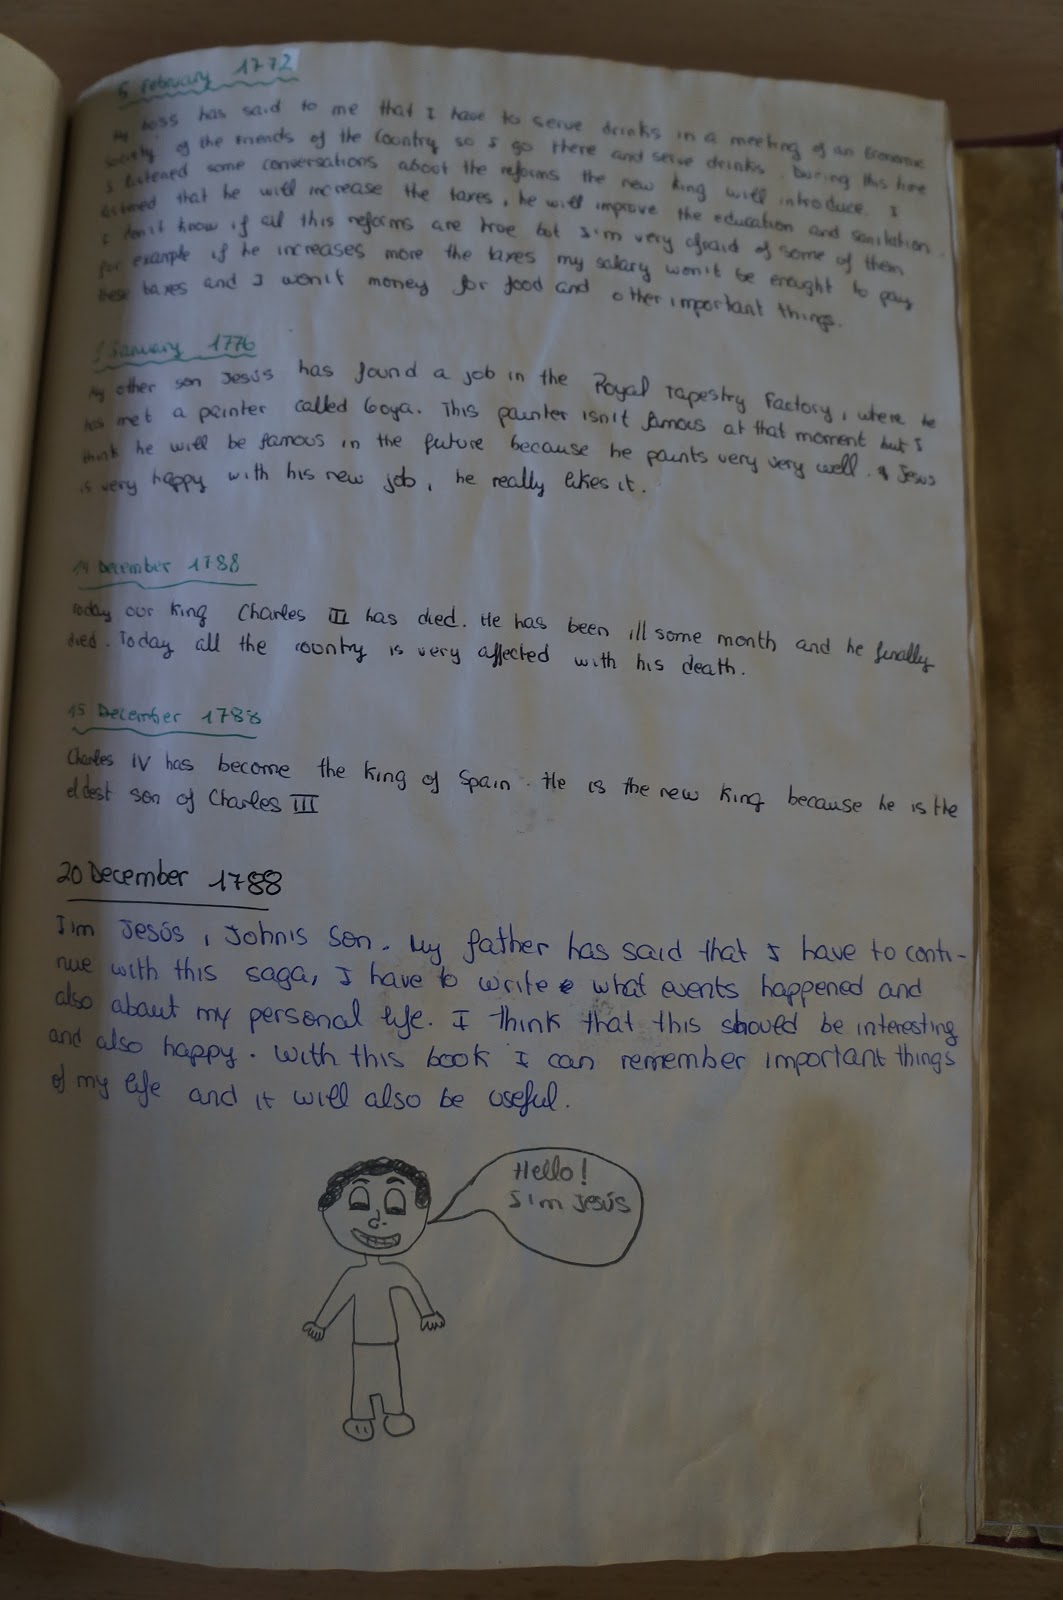 5 February 1772
My boss has said to me that I have to serve drinks in a meeting of an Economic
Society of the friends of the Country so I go there and serve drinks. During this time
I listened some conversations about the reforms the new king will introduce. I
listened that he will increase the taxes, he will improve the education and sanitation.
I don't know if all this reforms are true but I'm very afraid of some of them
for example if he increases more the taxes my salary won't be enought to pay
these taxes and I won't money for food and other important things.
1 January 1776
My other son Jesús has found a job in the Royal Tapestry Factory, where he
has met a painter called Goya. This painter isn't famous at that moment but I
think he will be famous in the future because he paints very very well. Jesus
is very happy with his new job, he really likes it.
14 December 1788
Today our king Charles III has died. He has been ill some month and he finally
died. Today all the country is very affected with his death.
15 December 1788
Charles IV has become the king of Spain. He is the new king because he is the
eldest son of Charles III
20 December 1788
I'm Jesús, John's son. My father has said that I have to conti-
nue with this saga, I have to write what events happened and
also about my personal life. I think that this should be interesting
and also happy. With this book I can remember important things
of my life and it will also be useful.
Hello!
I'm Jesús